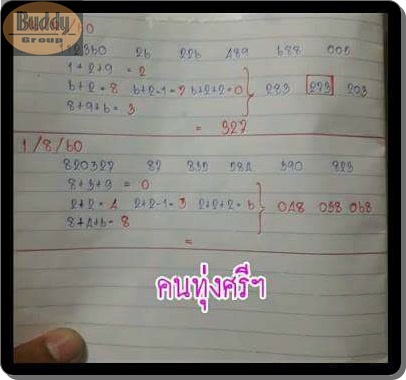 Buddy
Group
26 226 489 688
1+2+9 = 2
6+2 = 8 6+2-1=7 6+2+2=0 283 273 203
8+9+6 = 3
= 327
1/8/60
820327 82 832 584 390 823
8+3+9 = 0
2+2 = 4 2+2-1=3 2+2+2=6 048 038 068
8+4+6= 8
=
คนทุ่งศรีฯ